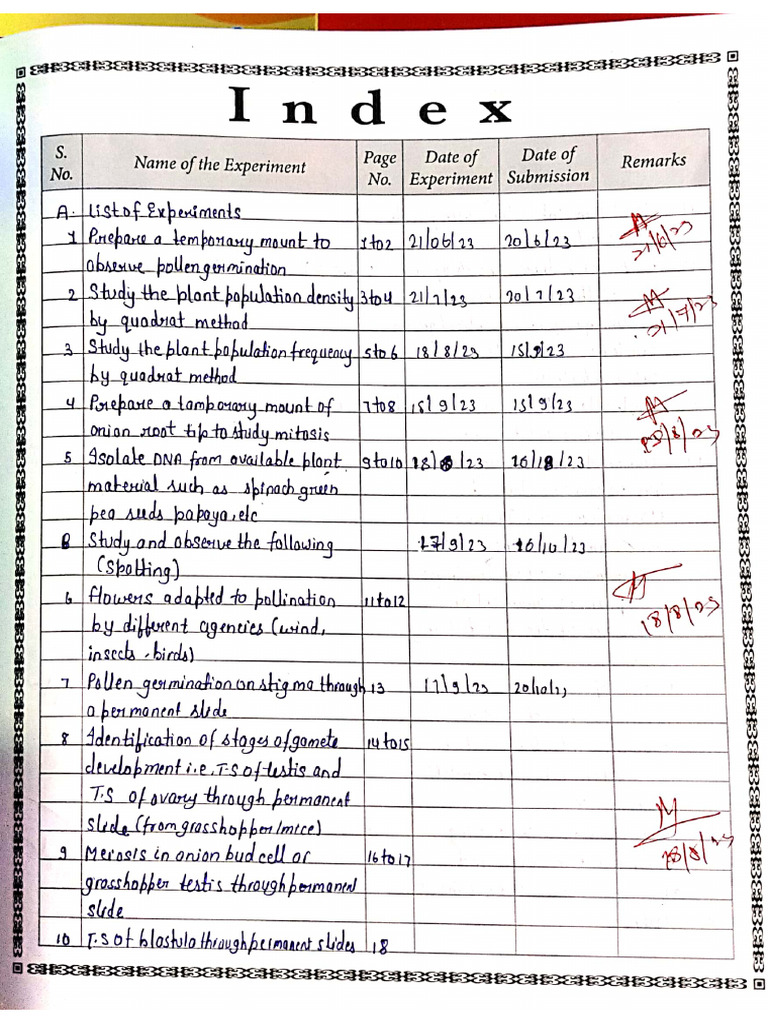 Index
S. No. Name of the Experiment Page No. Date of Experiment Date of Submission Remarks
A. List of Experiments
1 Prepare a temporary mount to 1 to 2 21/06/23 20/6/23
observe pollen germination 21/6/23
2 Study the plant population density 3 to 4 21/7/23 20/7/23
by quadrat method 21/7/23
3 Study the plant population frequency 5 to 6 18/8/23 15/9/23
by quadrat method
4 Prepare a tamporary mount of 7 to 8 15/9/23 15/9/23
onion root tip to study mitosis
5 Isolate DNA from available plant 9 to 10 18/8/23 16/18/23
material such as spinach green
pea seeds papaya, etc
B Study and observe the following 17/9/23 16/10/23
(Spotting)
6 Flowers adapted to pollination 11 to 12
by different agencies (wind, 18/8/23
insects, birds)
7 Pollen germination on stigma through 13 17/9/23
a permanent slide
8 Identification of stages of gamete 14 to 15
development i.e. T.S of testis and
T.S of ovary through permanent
slide (from grasshopper/mice)
9 Meiosis in onion bud cell or 16 to 17 18/8/23
grasshopper testis through permanend
slide
10 T.S of blastula through permanent slides 18